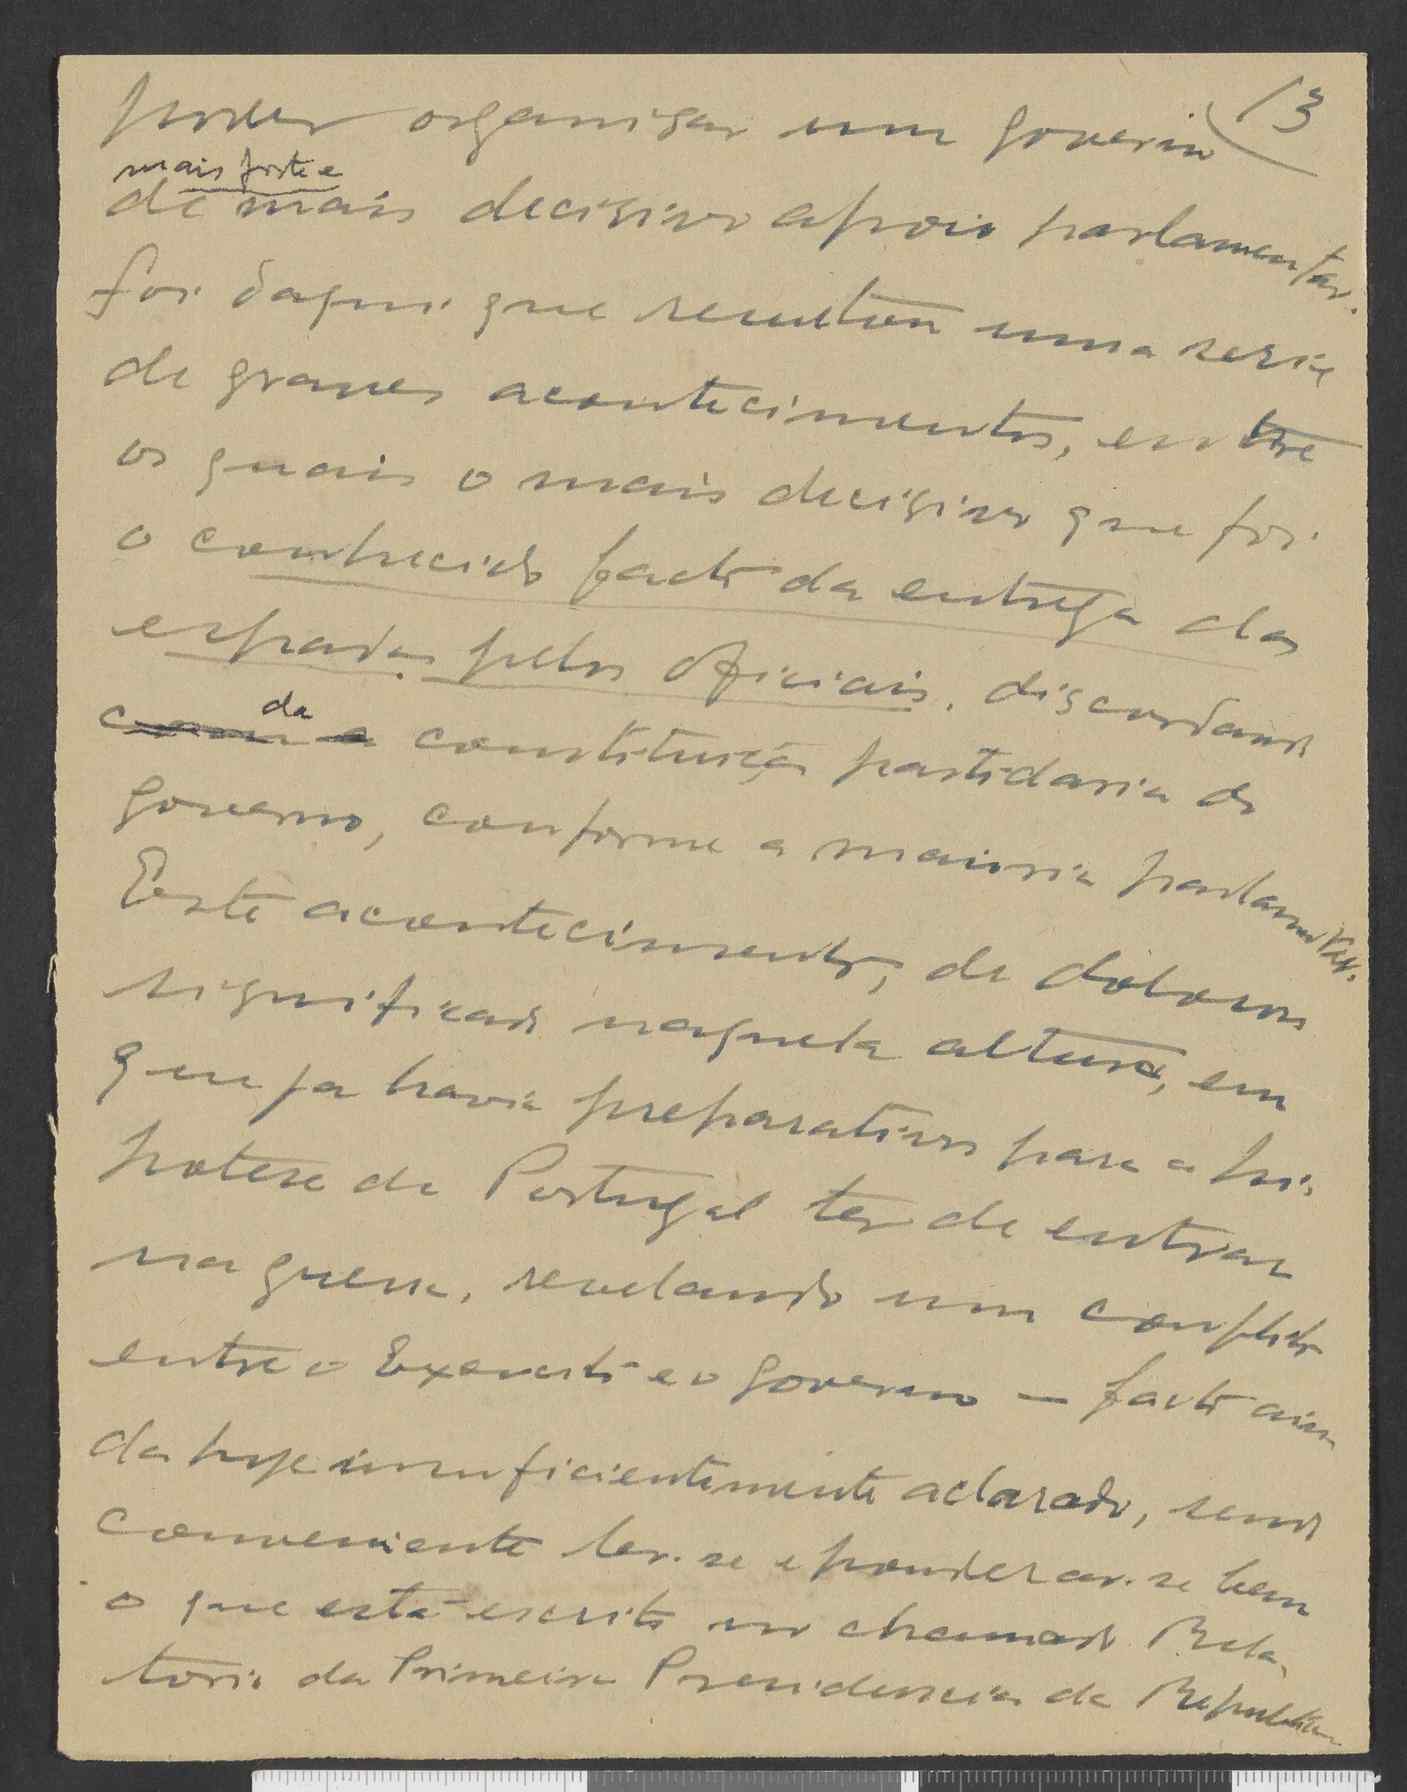 13
poder organisar um governo
mais forte e
de mais decisivo apoio parlamentar.
foi daqui que resultou uma serie
de graves acontecimentos, entre
os quais o mais decisivo que foi
o conhecido facto da entrega das
espadas pelos oficiais, discordando
com a da constituição partidaria do
governo, conforme a maioria parlamentar.
Este acontecimento, de doloroso
significado naquela altura, em
que ja havia preparativos para a hi-
potese de Portugal ter de entrar
na guerra, revelando um conflito
entre o Exercito e o governo — facto ain
da hoje insuficientemente aclarado, sendo
conveniente ler-se e ponderar-se bem
o que está escrito no chamado Rela-
torio da Primeira Presidencia da Republica